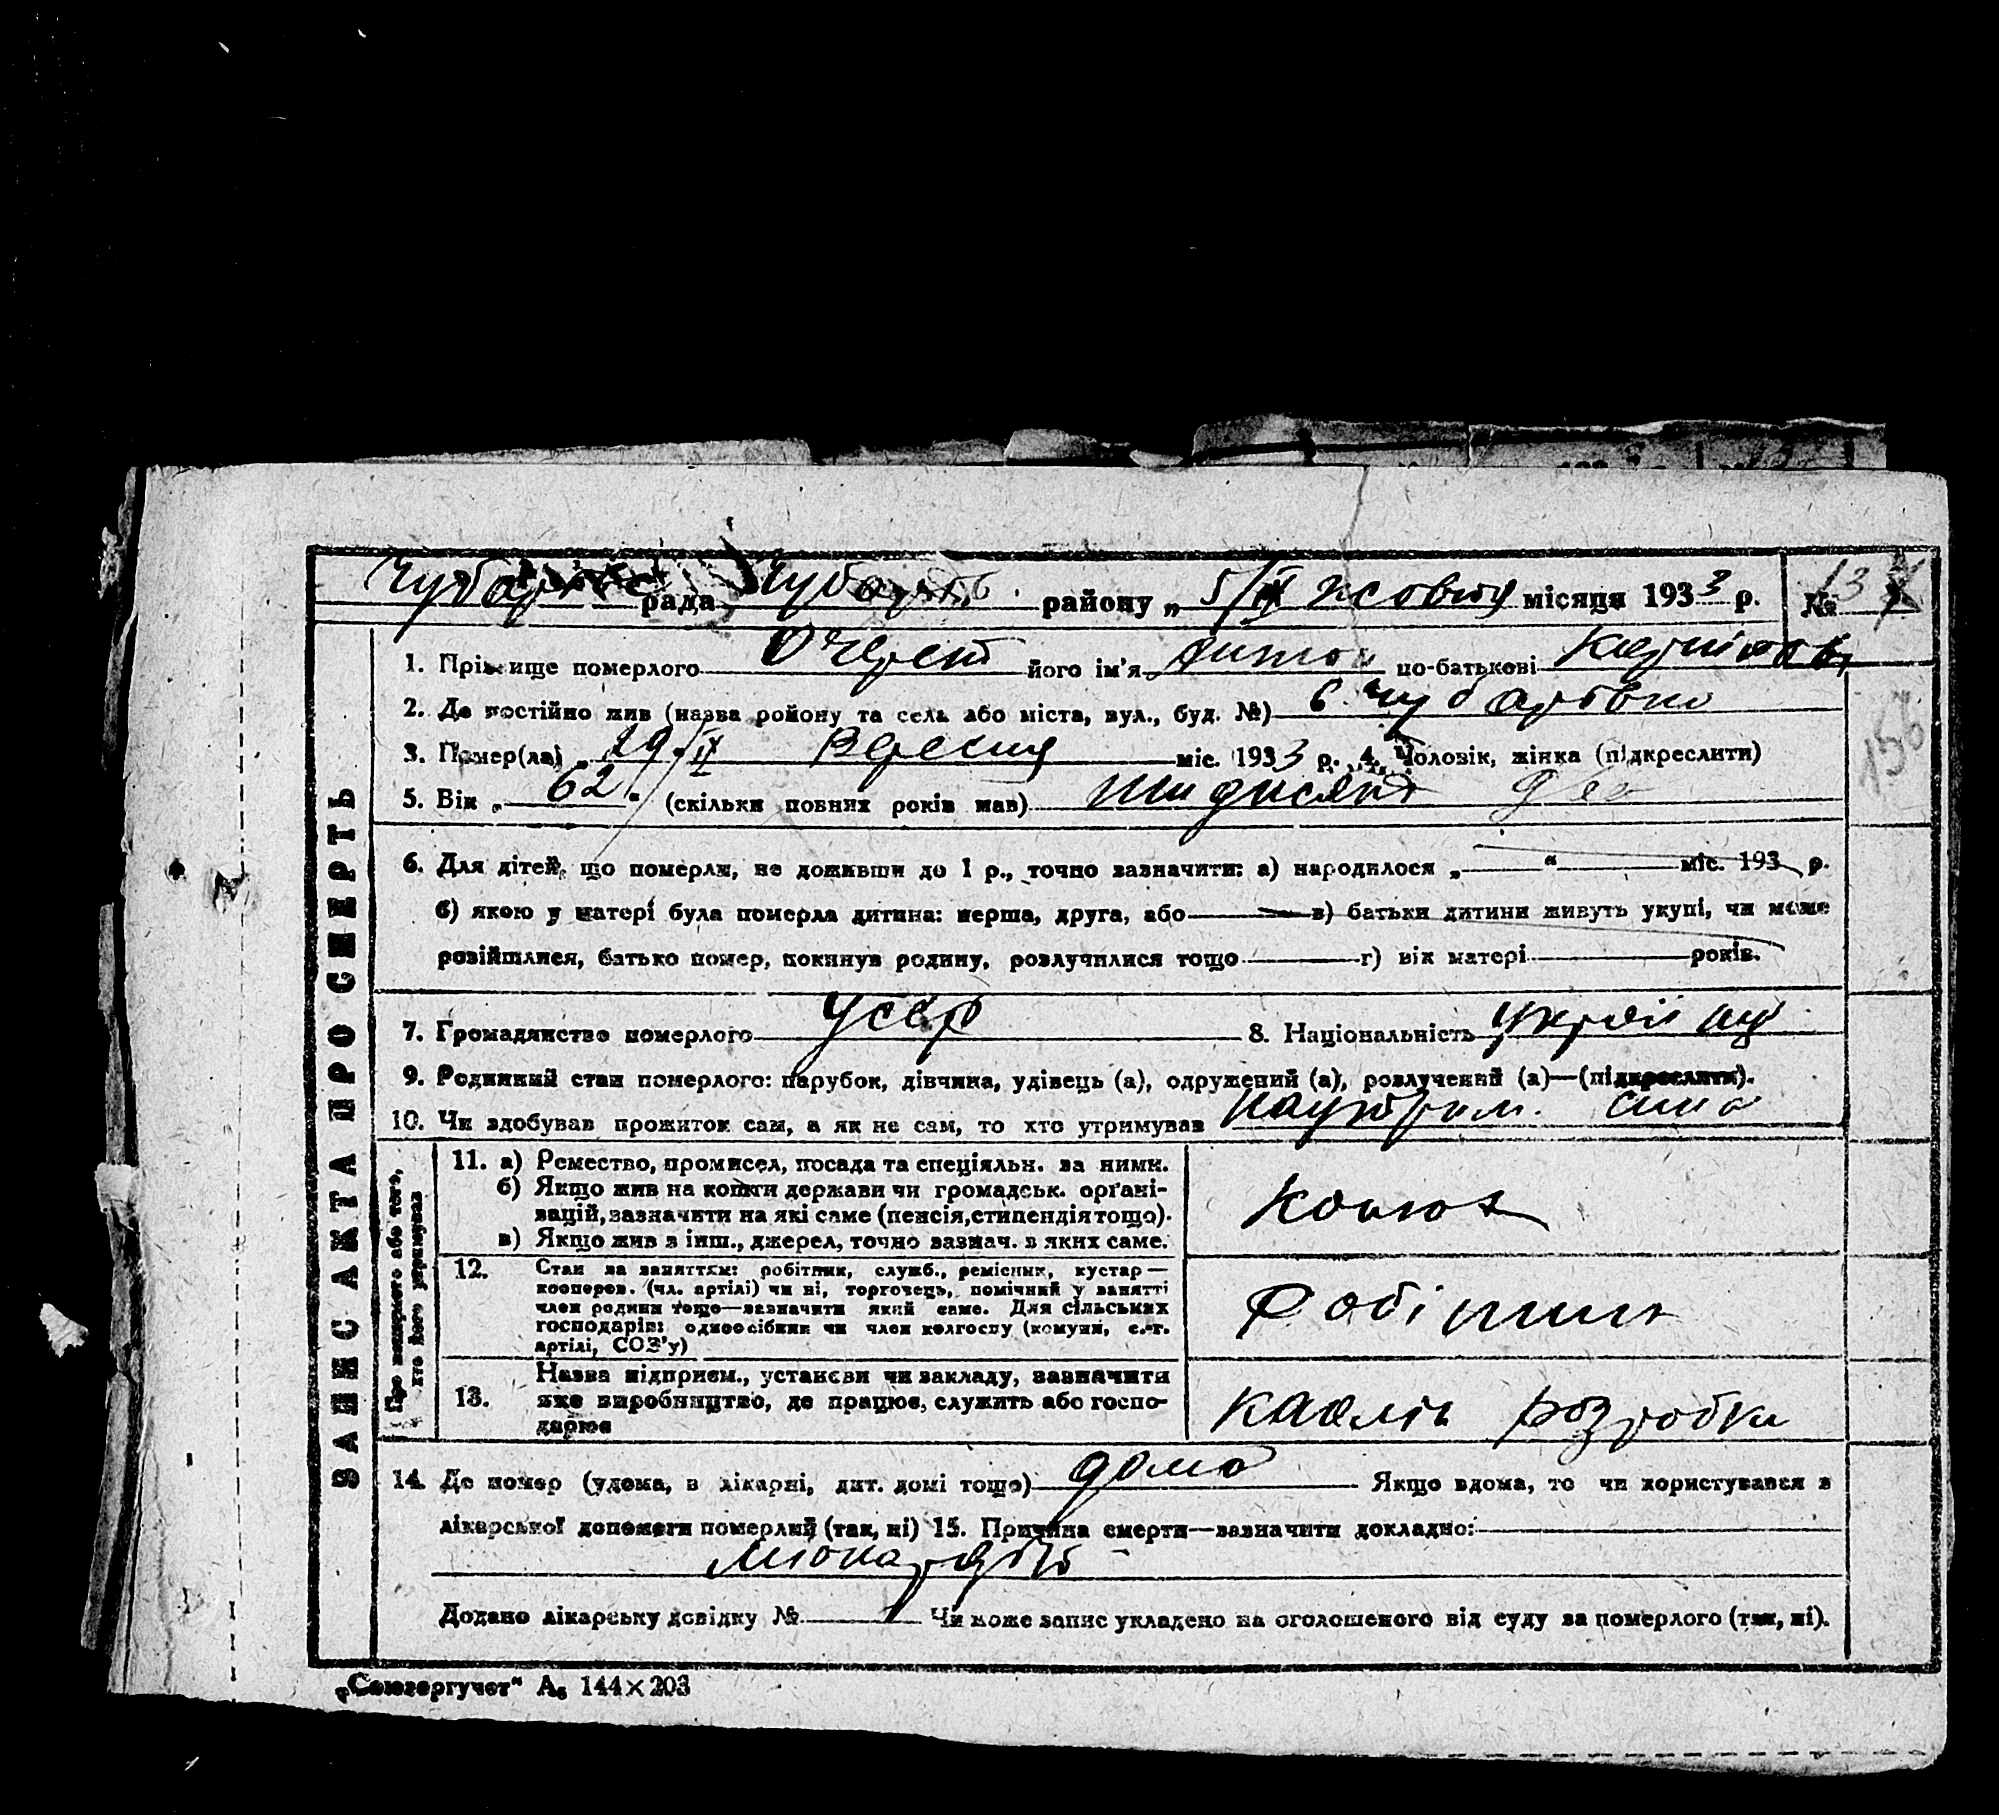 рада району „ 5/IX жовтня місяця 1933 р. № 13
ЗАПИС АКТА ПРО СМЕРТЬ
1. Прізвище померлого Очерет його ім'я по-батькові
2. Де постійно жив (назва району та села або міста, вул., буд. №) с. Чубарівка
3. Помер(ла) „ 19/IX Вересня міс. 1933 р. 4. Чоловік, жінка (підкреслити)
5. Вік „ 62 “ (скільки повних років мав) два
156
6. Для дітей, що померли, не доживши до 1 р., точно зазначити: а) народилося „ “ міс. 193 р.
б) якою у матері була померла дитина: перша, друга, або в) батьки дитини живуть укупі, чи може
розійшлися, батько помер, покинув родину, розлучилися тощо г) вік матері років.
7. Громадянство померлого УСРР 8. Національність
9. Родинний стан померлого: парубок, дівчина, удівець (а), одружений (а), розлучений (а)—(підкреслити).
10. Чи здобував прожиток сам, а як не сам, то хто утримував сина
Про померлого або того,
хто його утримував
11. а) Ремество, промисел, посада та спеціяльн. за ними.
б) Якщо жив на кошти держави чи громадськ. органі-
зацій, зазначити на які саме (пенсія, стипендія тощо).
в) Якщо жив з інш., джерел, точно зазнач. з яких саме.
Конюх
12. Стан за заняттям: робітник, служб., ремісник, кустар—
кооперов. (чл. артілі) чи ні, торговець, помічний у занятті
член родини тощо—зазначити який саме. Для сільських
господарів: одноосібник чи член колгоспу (комуни, с.-г.
артілі, СОЗ'у)
Робітник
13. Назва підприєм., установи чи закладу, зазначити
яке виробництво, де працює, служить або госпо-
дарює
розробки
14. Де помер (удома, в лікарні, дит. домі тощо) дома Якщо вдома, то чи користувався з
лікарської допомоги померлий (так, ні) 15. Причина смерти—зазначити докладно:
Додано лікарську довідку № Чи може запис укладено на оголошеного від суду за померлого (так, ні).
„Союзоргучет“ А₆ 144×203